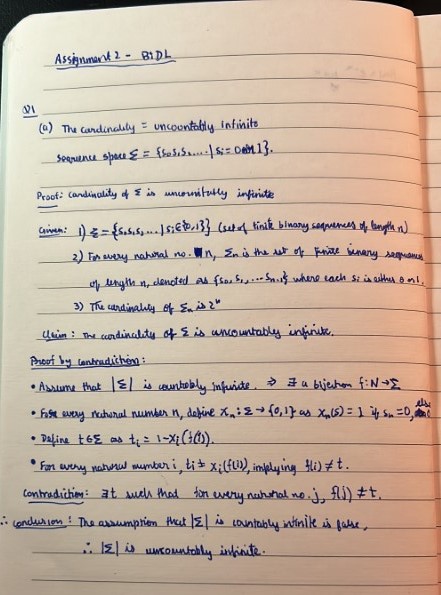 Assignment 2 - BIDL
Q1
(a) The cardinality = uncountably infinite
sequence space Σ = {s₀s₁s₂.... | sᵢ = 0 or 1}.
Proof: cardinality of Σ is uncountably infinite
Given: 1) Σ = {s₀s₁s₂... | sᵢ∈{0,1}} (set of finite binary sequences of length n)
2) For every natural no. n, Σₙ is the set of finite binary sequences
of length n, denoted as {s₀, s₁, ... sₙ₋₁} where each sᵢ is either 0 or 1.
3) The cardinality of Σₙ is 2ⁿ
Claim: The cardinality of Σ is uncountably infinite.
Proof by contradiction:
• Assume that |Σ| is countably infinite. ⇒ ∃ a bijection f: N→Σ
• For every natural number n, define xₙ: Σ → {0,1} as xₙ(s) = 1 if sₙ=0, else 0
• Define t∈Σ as tᵢ = 1-xᵢ(f(i)).
• For every natural number i, tᵢ ≠ xᵢ(f(i)), implying f(i) ≠ t.
Contradiction: ∃t such that for every natural no. j, f(j) ≠ t.
∴ Conclusion: The assumption that |Σ| is countably infinite is false,
∴ |Σ| is uncountably infinite.